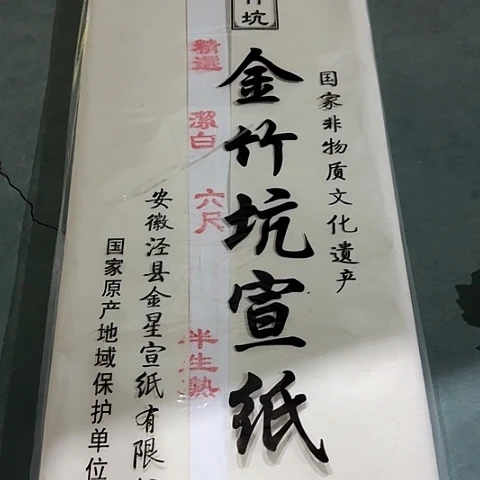 国家非物质文化遗产
竹坑
金竹坑宣纸
精選
潔白
六尺
半生熟
安徽泾县金星宣纸有限
国家原产地域保护单位